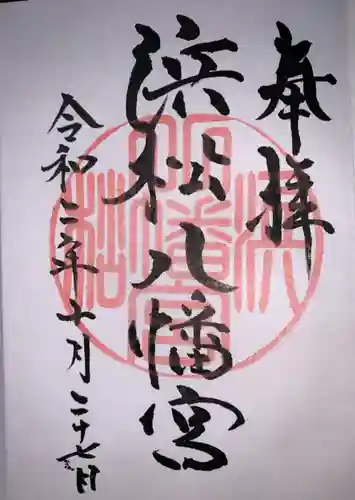 奉拝
浜松八幡宮
令和二年十月二十七日